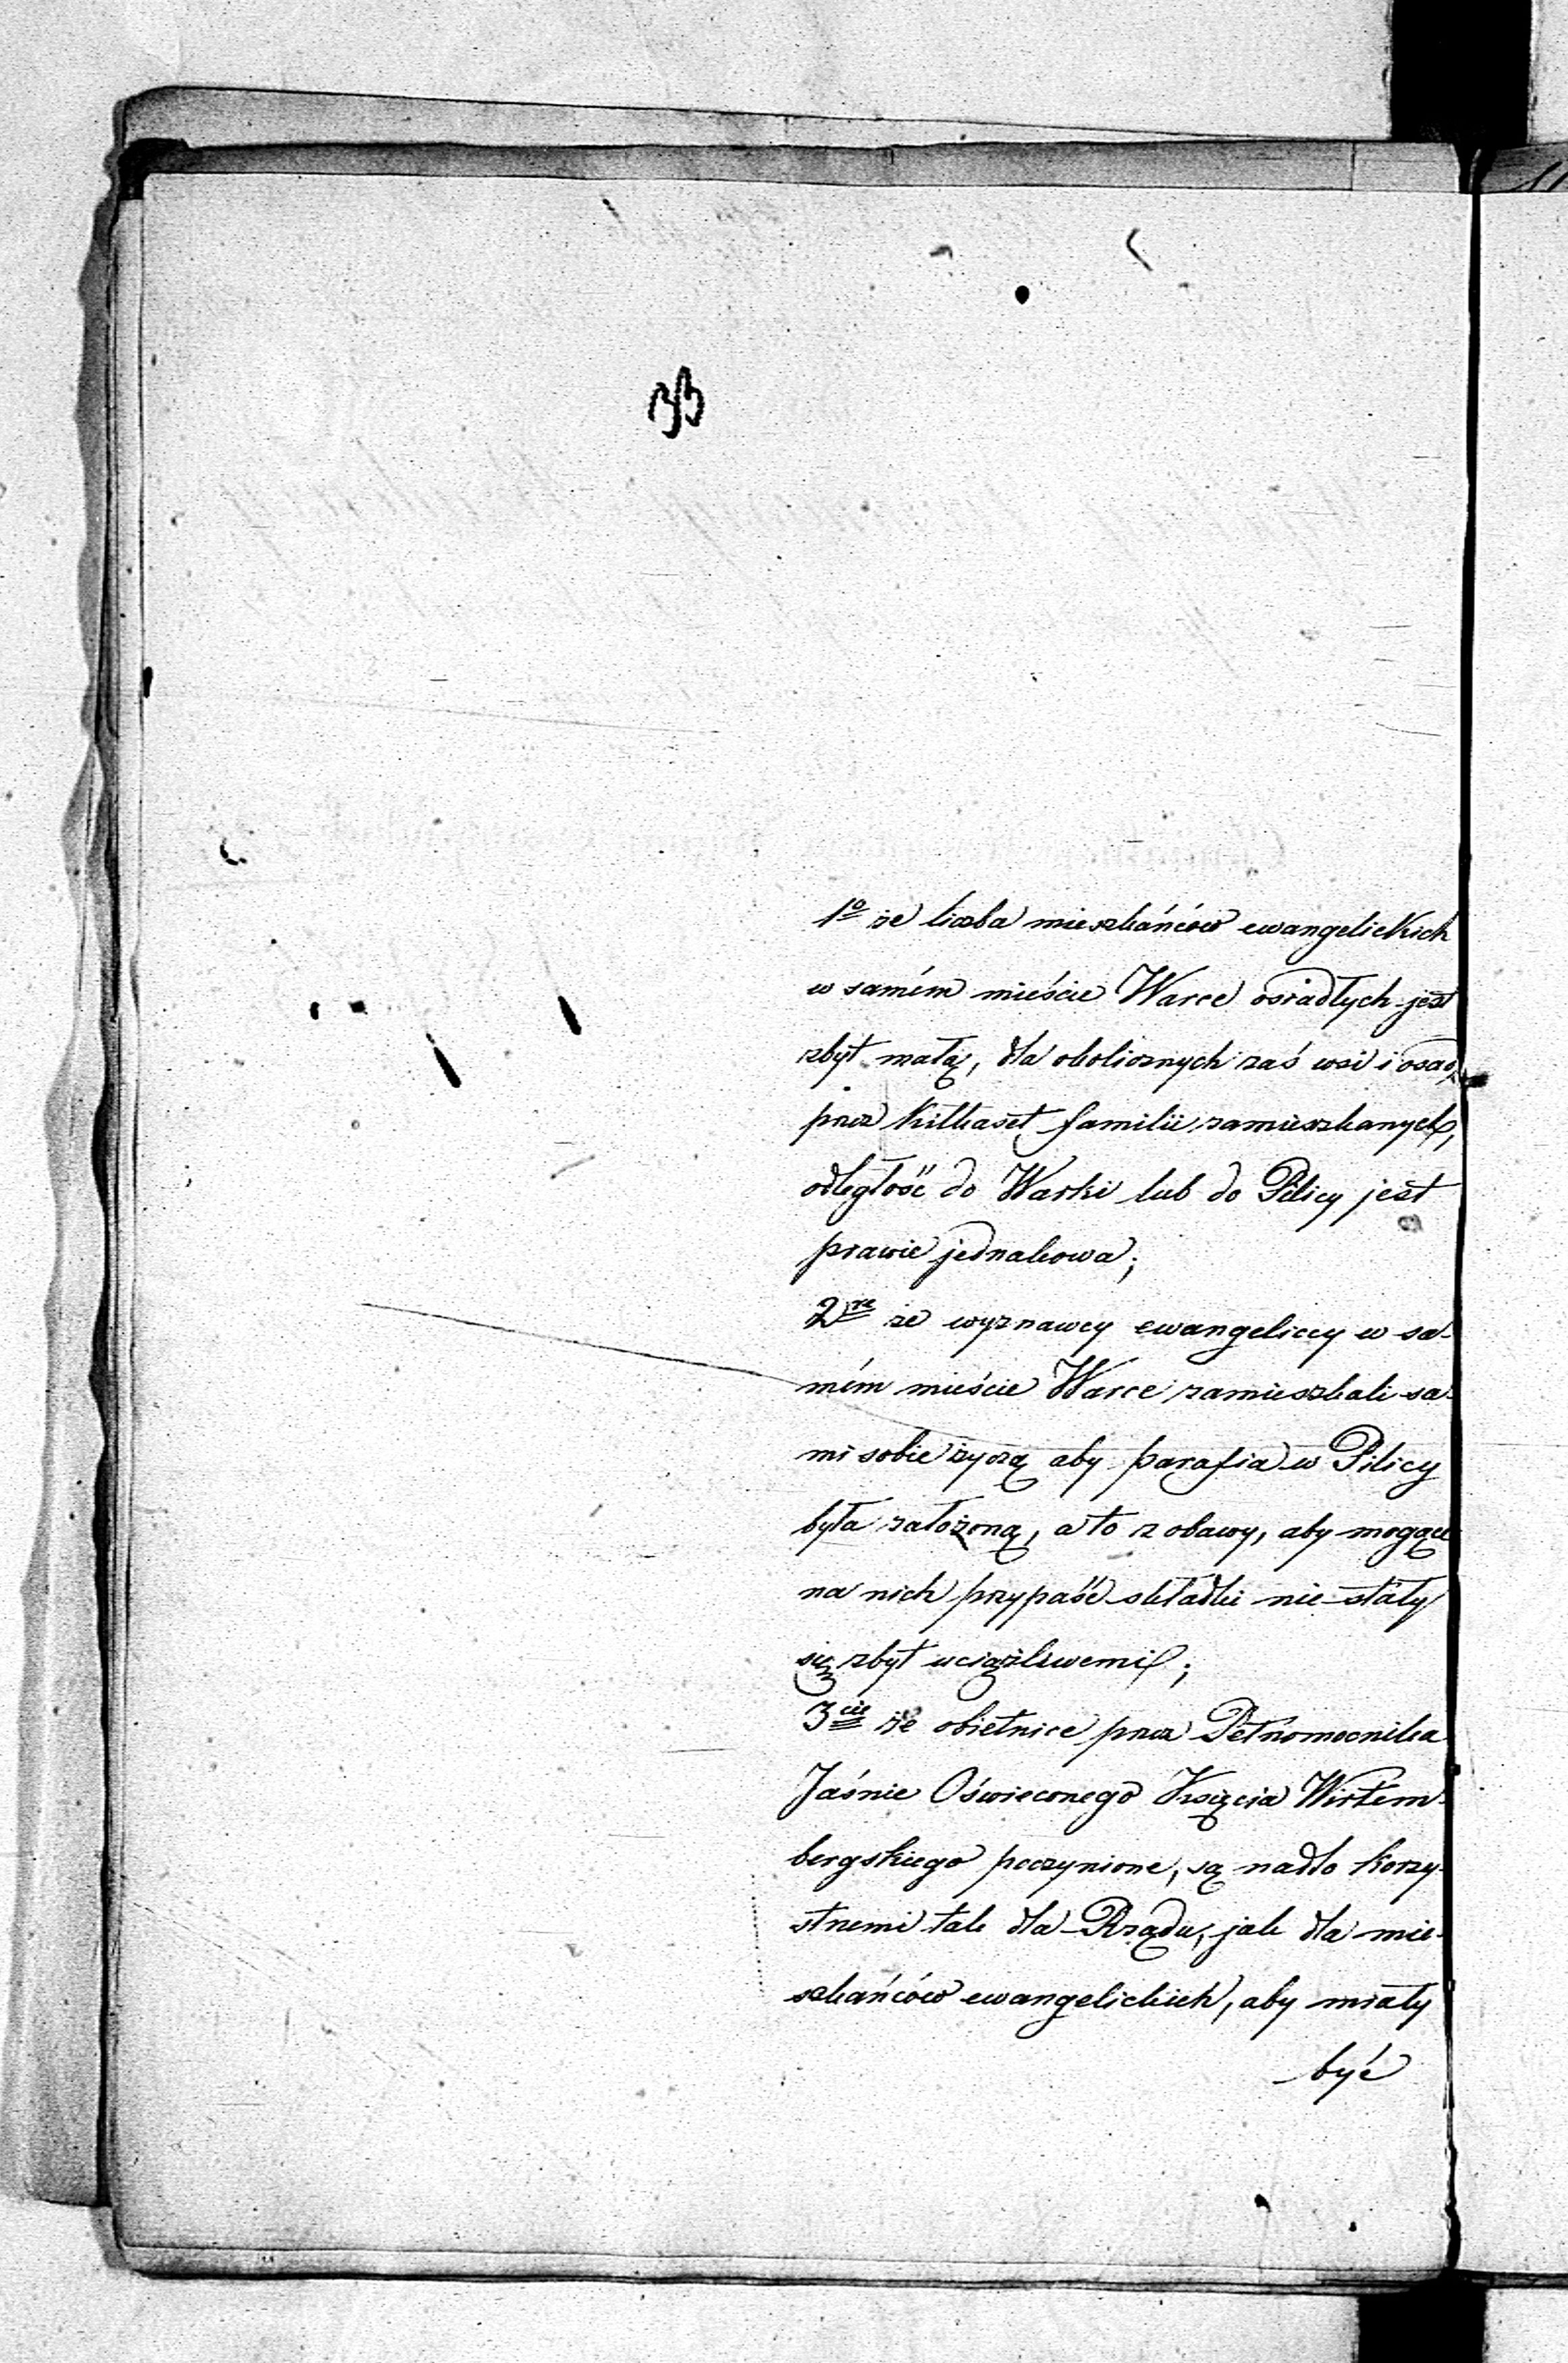 1º że liczba mieszkańców ewangelickich
w samém mieście Warce osiadłych jest
zbyt małą, dla okolicznych zaś wsi i osad,
przez kilkaset familii zamieszkanych,
odległość do Warki lub do Pilicy jest
prawie jednakowa;
2re że wyznawcy ewangeliccy w sa-
mém mieście Warce zamieszkali sa-
mi sobie życzą aby parafia w Pilicy
była założoną, a to z obawy, aby mogące
na nich przypaść składki nie stały
się zbyt uciążliwemi;
3cie że obietnice przez Pełnomocnika
Jaśnie Oświeconego Księcia Wirtem-
bergskiego poczynione, są nadto korzy-
stnemi tak dla Rządu, jak dla mie-
szkańców ewangelickich, aby miały
być